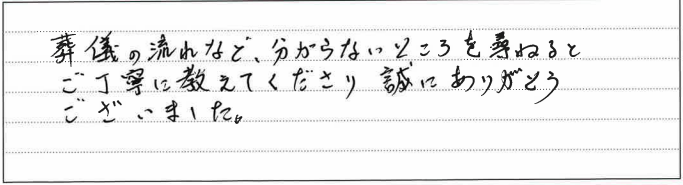 葬儀の流れなど、分からないところを尋ねると
ご丁寧に教えてくださり 誠にありがとう
ございました。